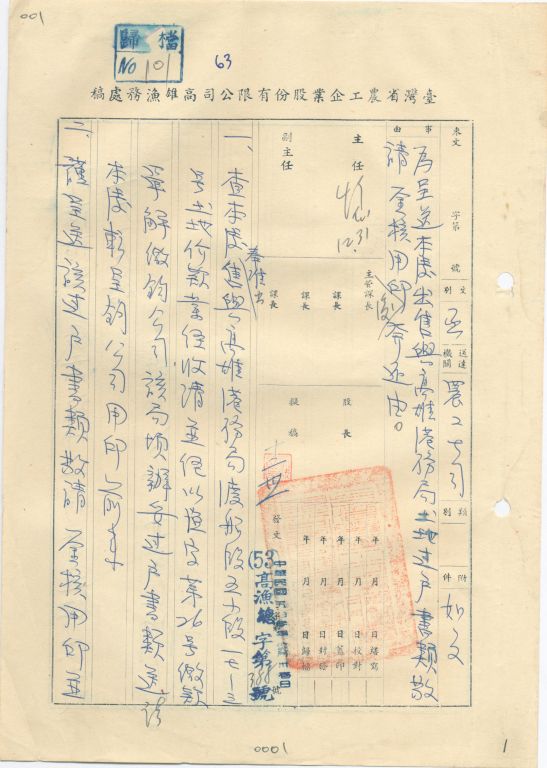 001
歸檔
NO 101
63
臺灣省農工企業股份有限公司高雄漁務處稿
來文 字第 號
文別 呈
送達機關 農工公司
類別
附件 如文
事由
為呈送本處出售與高雄港務局土地過戶書類敬
請 鑒核用印發還由。
主任
12.31
副主任
主管課長
課長
課長
課長
股長
擬稿
發文
年 月 日繕寫
年 月 日校對
年 月 日蓋印
年 月 日封發
年 月 日歸檔
(53)高漁總字第 號
一、查本處奉准出售與高雄港務局渡船段五小段一七-三
號土地價款業經收清並經以漁字第26號繳款
單解繳鈞公司該局填辦妥過戶書類送請
本處轉呈鈞公司用印前來
二、謹呈送該過戶書類敬請 鑒核用印並
0001
1